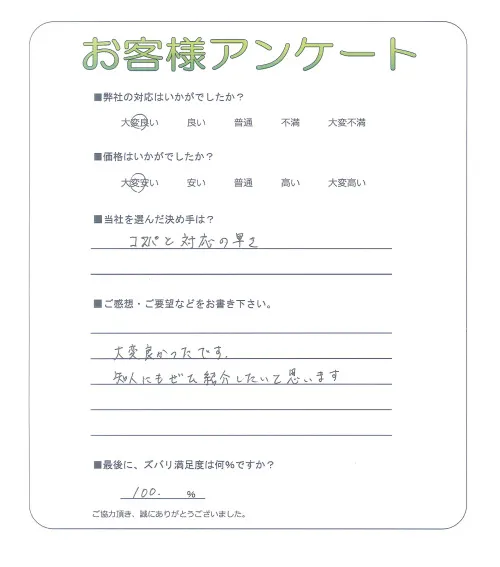 お客様アンケート
■弊社の対応はいかがでしたか？
大変良い 良い 普通 不満 大変不満
■価格はいかがでしたか？
大変安い 安い 普通 高い 大変高い
■当社を選んだ決め手は？
コスパと対応の早さ
■ご感想・ご要望などをお書き下さい。
大変良かったです.
知人にもぜひ紹介したいと思います
■最後に、ズバリ満足度は何％ですか？
100. ％
ご協力頂き、誠にありがとうございました。